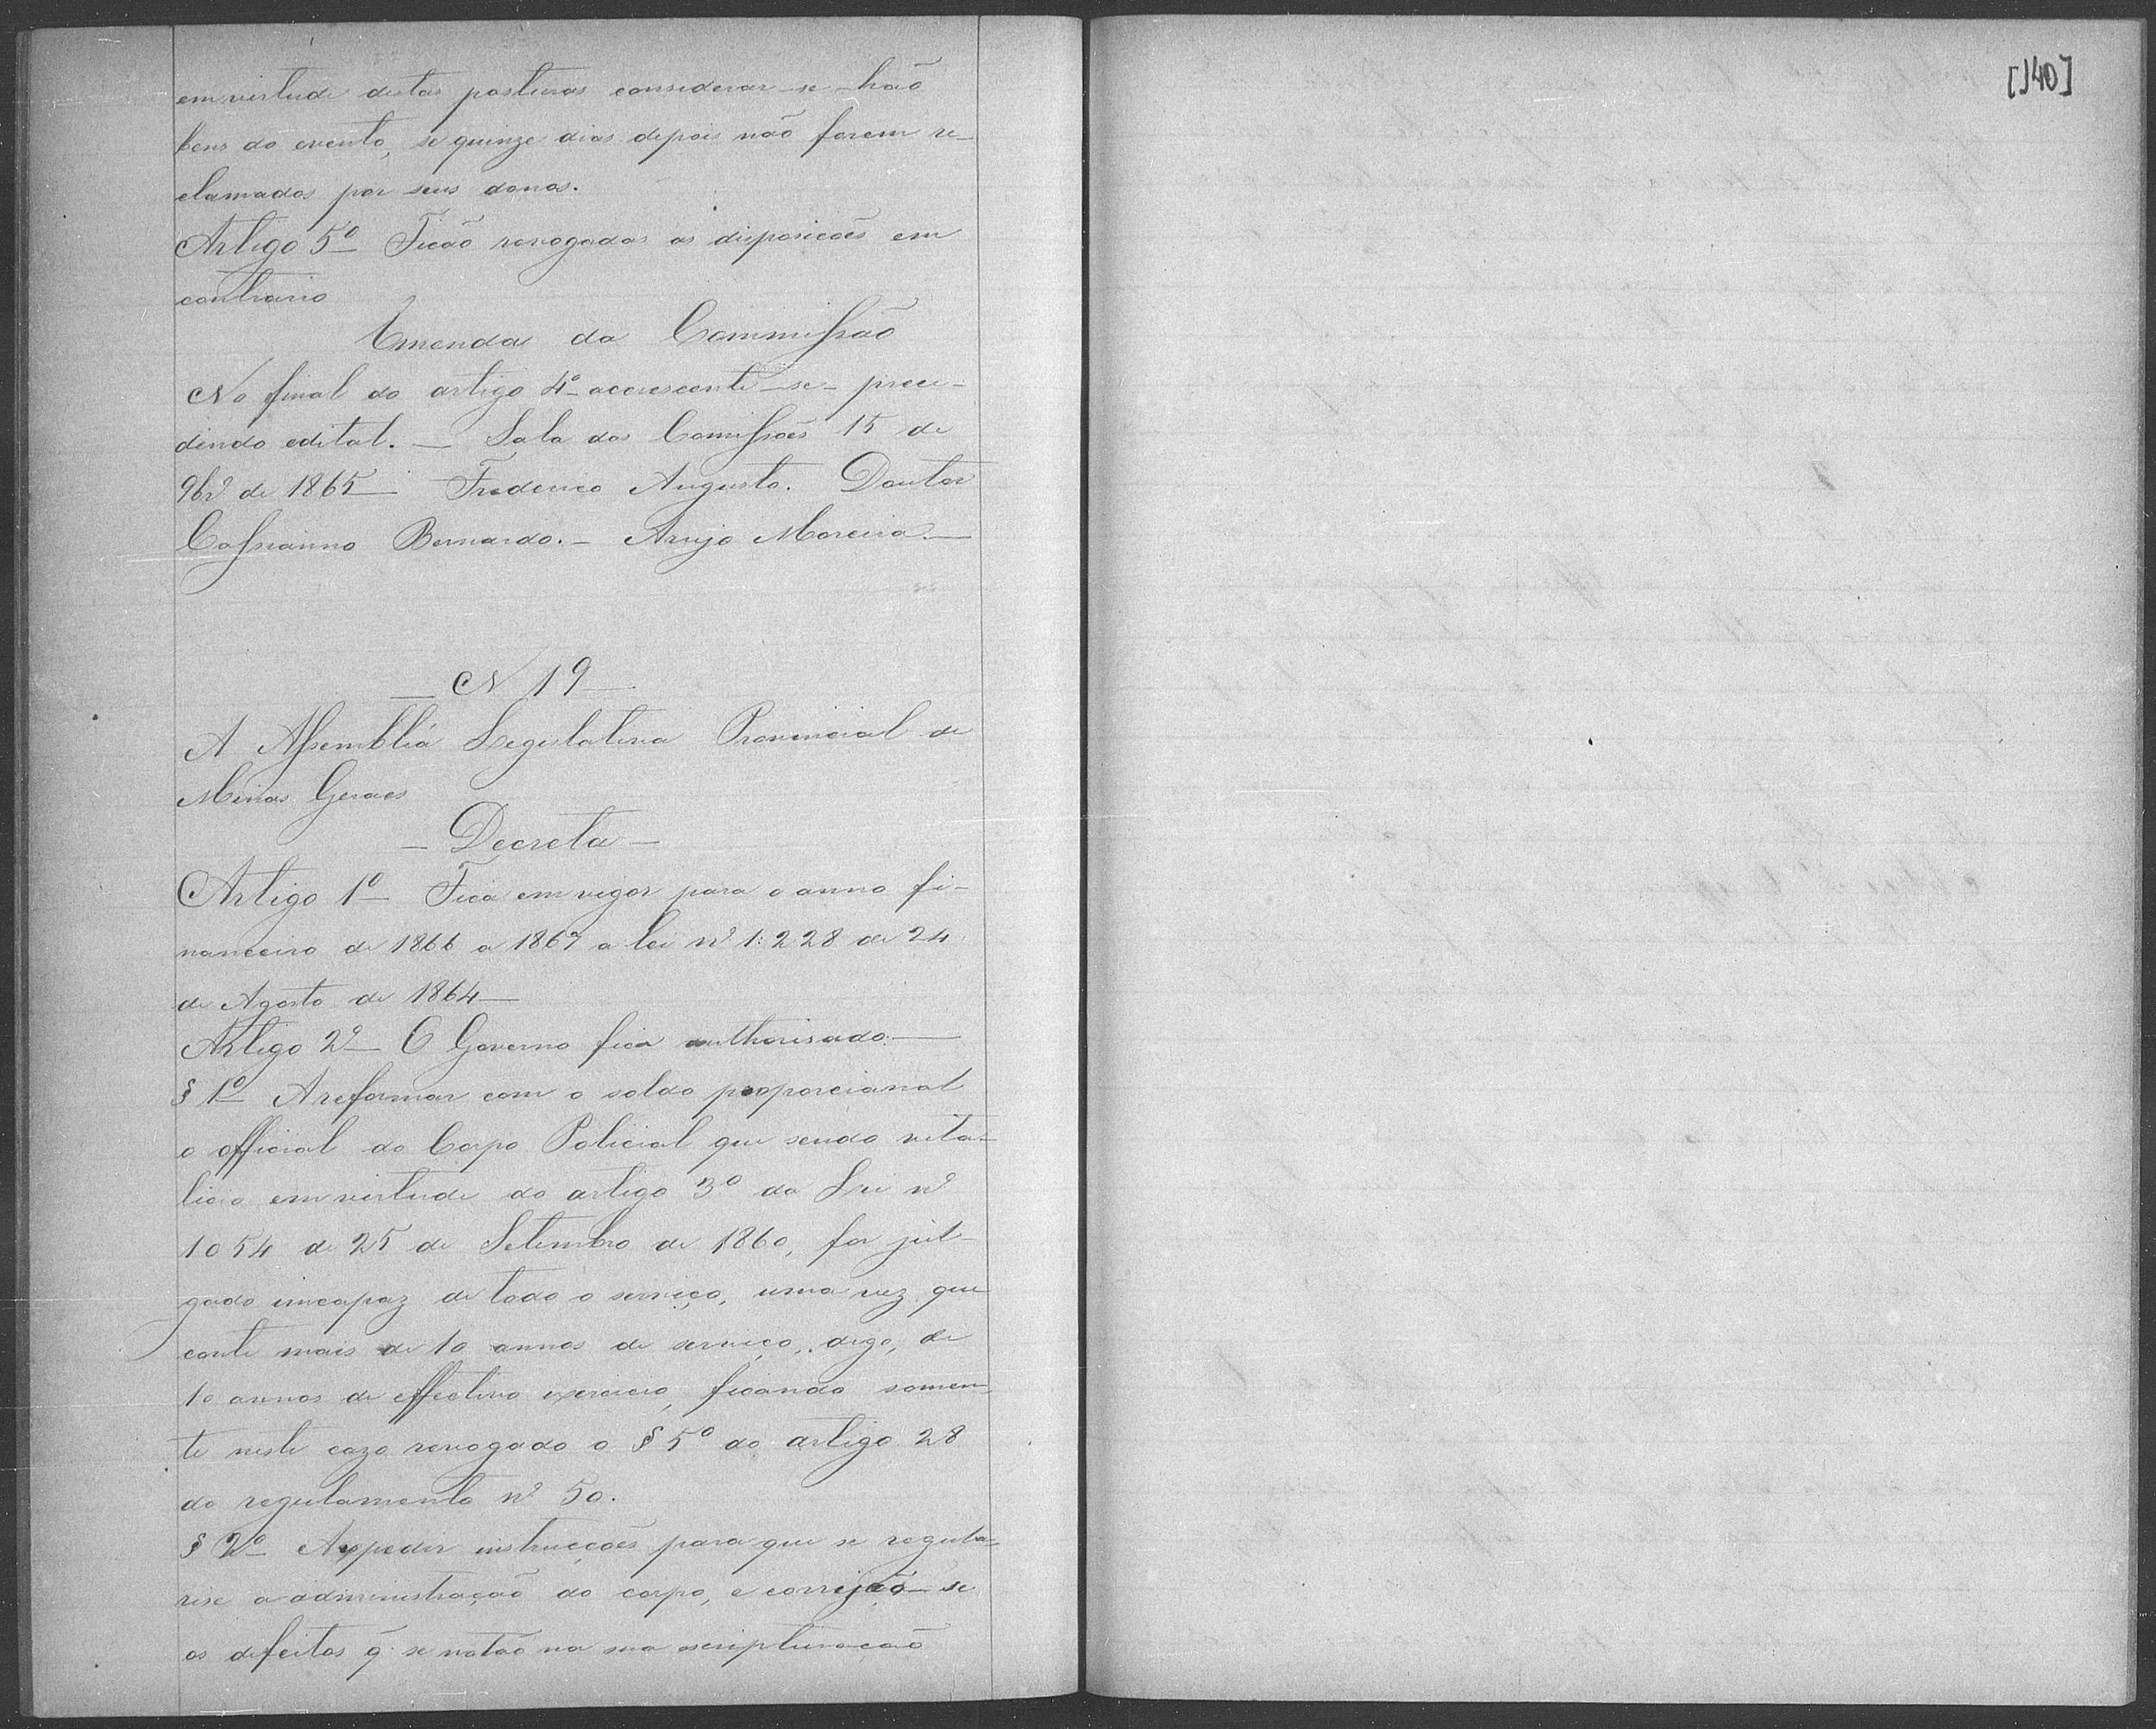 em virtude destas posturas considerar-se-hão
bens do evento, se quinze dias depois não forem re-
clamados por seus donos.
Artigo 5º Ficão revogadas as disposicões em
contrario
Emenda da Commissão
No final do artigo 4º accrescente-se- prece-
dendo edital. — Sala das Comissões 15 de
9brº de 1865 — Frederico Augusto. Doutor
Cassianno Bernardo. — Arujo Moreira. —
— N 19 —
A Assembléa Legislativa Provincial de
Minas Geraes
— Decreta —
Artigo 1º Fica em vigor para o anno fi-
nanceiro de 1866 a 1867 a lei nº 1:228 de 24
de Agosto de 1864 —
Artigo 2º — O Governo fica authorisado: —
§ 1º A reformar com o soldo proporcional
o official do Corpo Policial que sendo vita-
licio em virtude do artigo 3º da Lei nº
1054 de 25 de Setembro de 1860, for jul-
gado incapaz de todo o serviço, uma vez que
conte mais de 10 annos de serviço, digo, de
10 annos de effectivo exercicio, ficando somen-
te neste cazo revogado o § 5º do artigo 28
do regulamento nº 50.
§ 2º Axpedir instrucções para que se regula-
rise a administração do corpo, e corrijão-se
os defeitos q̃ se notão na sua escripturação
[140]